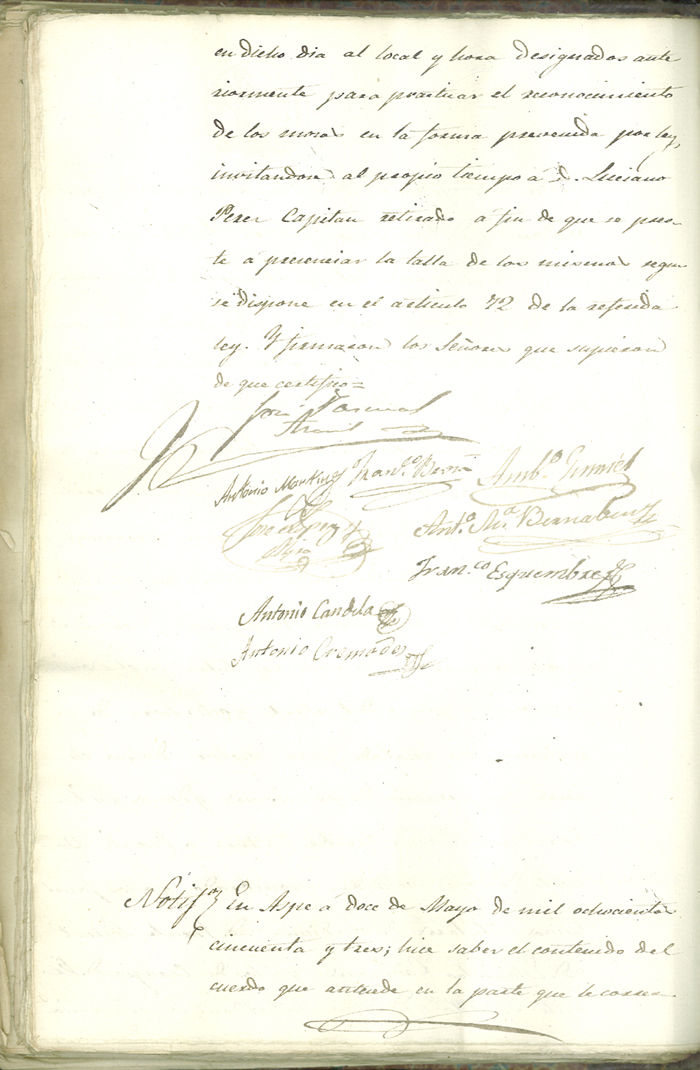 en dicho dia al local y hora designados ante
riormente para practicar el reconocimiento
de los mozos en la forma prevenida por ley,
invitandose al propio tiempo á D. Luciano
Perez Capitan retirado a fin de que se pres-
te a presenciar la talla de los mismos segun
se dispone en el articulo 72 de la referida
ley. Y firmaron los Señores que supieron
de que certifico=
José Pascual
Antonio Martinez Fran.co Ambº.
Antº. Mª. Bernabeu
Fran.co Esquembre
Antonio Candela
Antonio Cremades
Notifon En Aspe á doce de Mayo de mil ochocientos
cincuenta y tres; hice saber el contenido del
cuerdo que antecede en la parte que le corres-